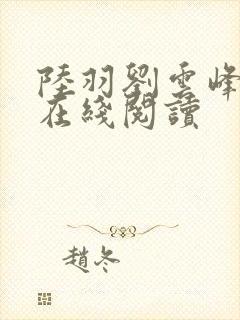 陸羽劉雲峰
在綫閱讀
趙冬